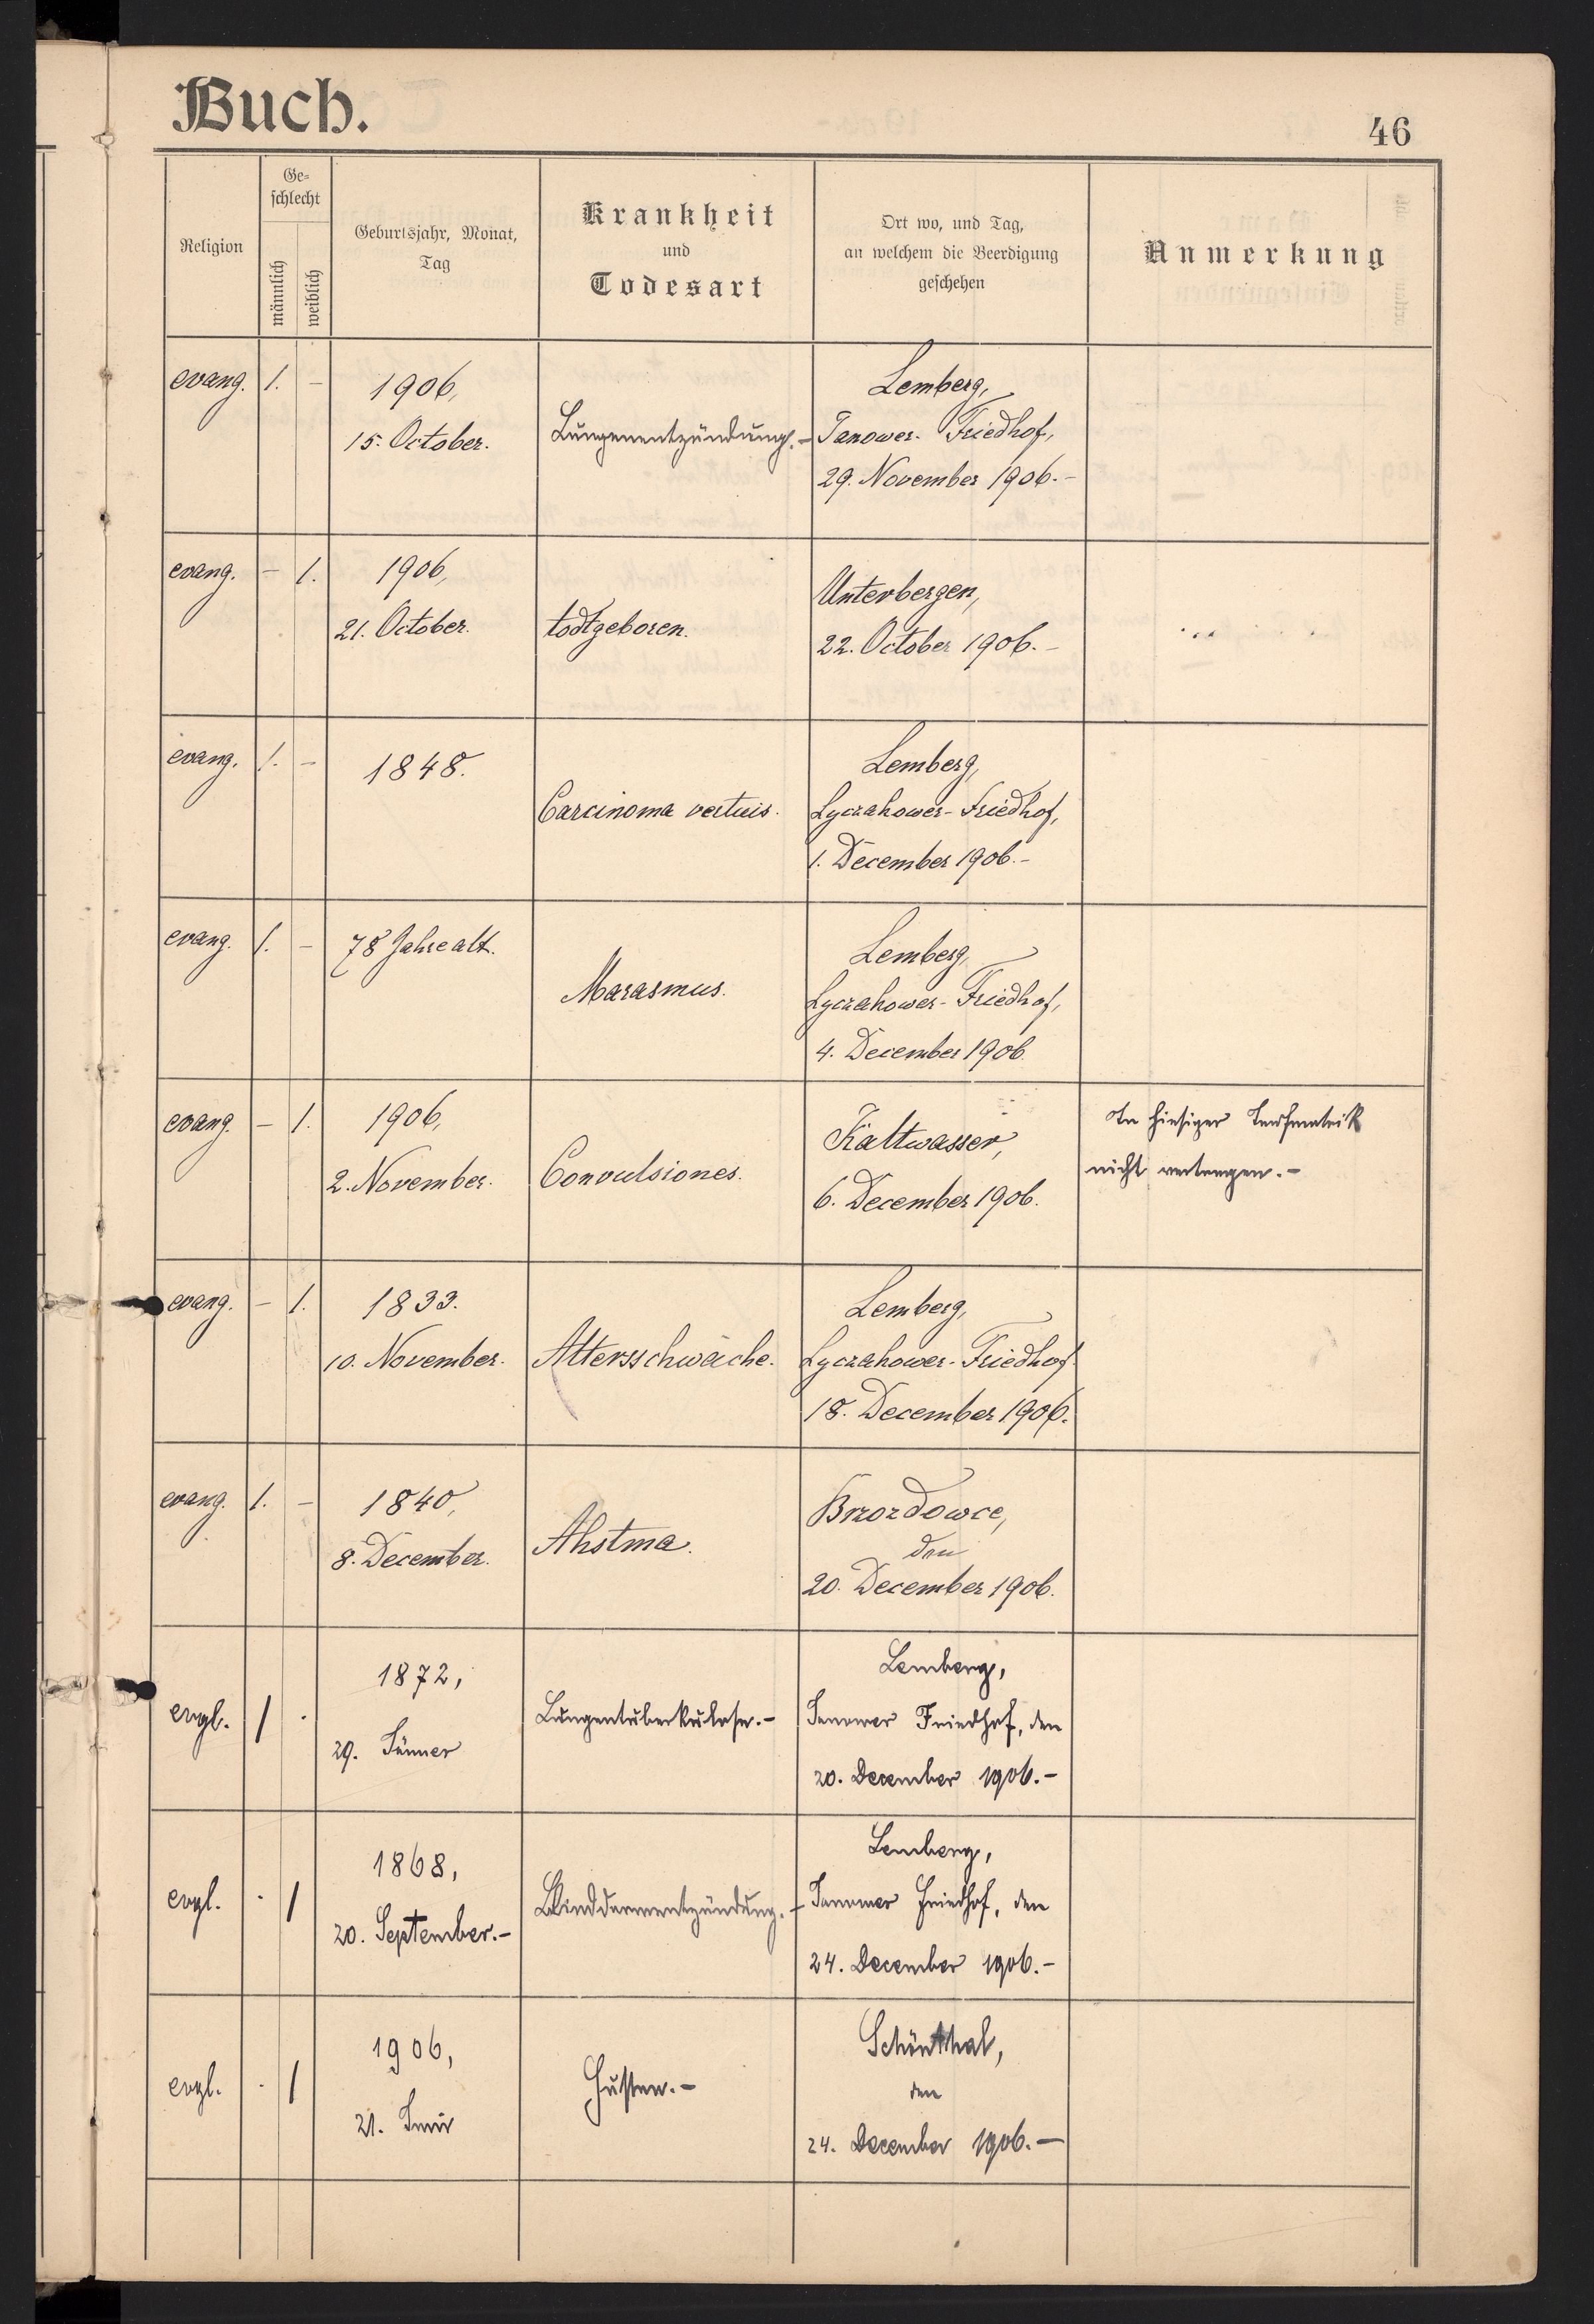 Buch.
46
Religion
Ge=
schlecht
männlich
weiblich
Geburtsjahr, Monat,
Tag
Krankheit
und
Todesart
Ort wo, und Tag,
an welchem die Beerdigung
geschehen
Anmerkung
evang. 1. –
1906,
15. October.
Lungenentzündung. –
Lemberg,
Janower- Friedhof,
29. November 1906. –
evang. – 1.
1906,
21. October.
todtgeboren.
Unterbergen,
22. October 1906. –
evang. 1. –
1848.
Carcinoma
Lemberg,
Lyczakower- Friedhof,
1. December 1906. –
evang. 1. –
78 Jahre alt.
Marasmus.
Lemberg,
Lyczakower- Friedhof,
4. December 1906.
evang. – 1.
1906,
2. November.
Convulsiones.
Kaltwasser,
6. December 1906.
In hiesiger Taufmatrik
nicht
evang. – 1.
1833.
10. November.
Altersschwäche.
Lemberg,
Lyczakower- Friedhof
18. December 1906.
evang. 1. –
1840,
8. December.
Ahstma.
Brzozdowce,
den
20. December 1906.
evgl. 1 ·
1872,
29. Jänner
Lungentuberkulose. –
Lemberg,
Janower Friedhof, den
20. December 1906. –
evgl. · 1
1868,
20. September. –
Blinddarmentzündung. –
Lemberg,
Janower Friedhof, den
24. December 1906. –
evgl. · 1
1906,
21. Juni
Husten. –
Schönthal,
den
24. December 1906. –